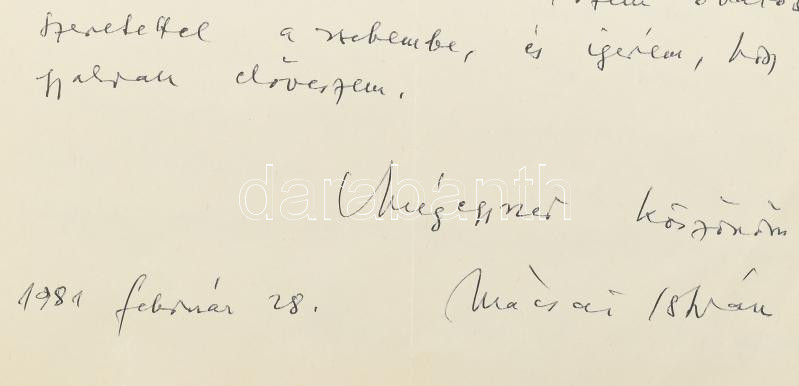 szeretettel a zsebembe, és igérem, hogy
gyakran előveszem.
Mégegyszer köszönöm
1981 február 28. Mácsai István
darabanth